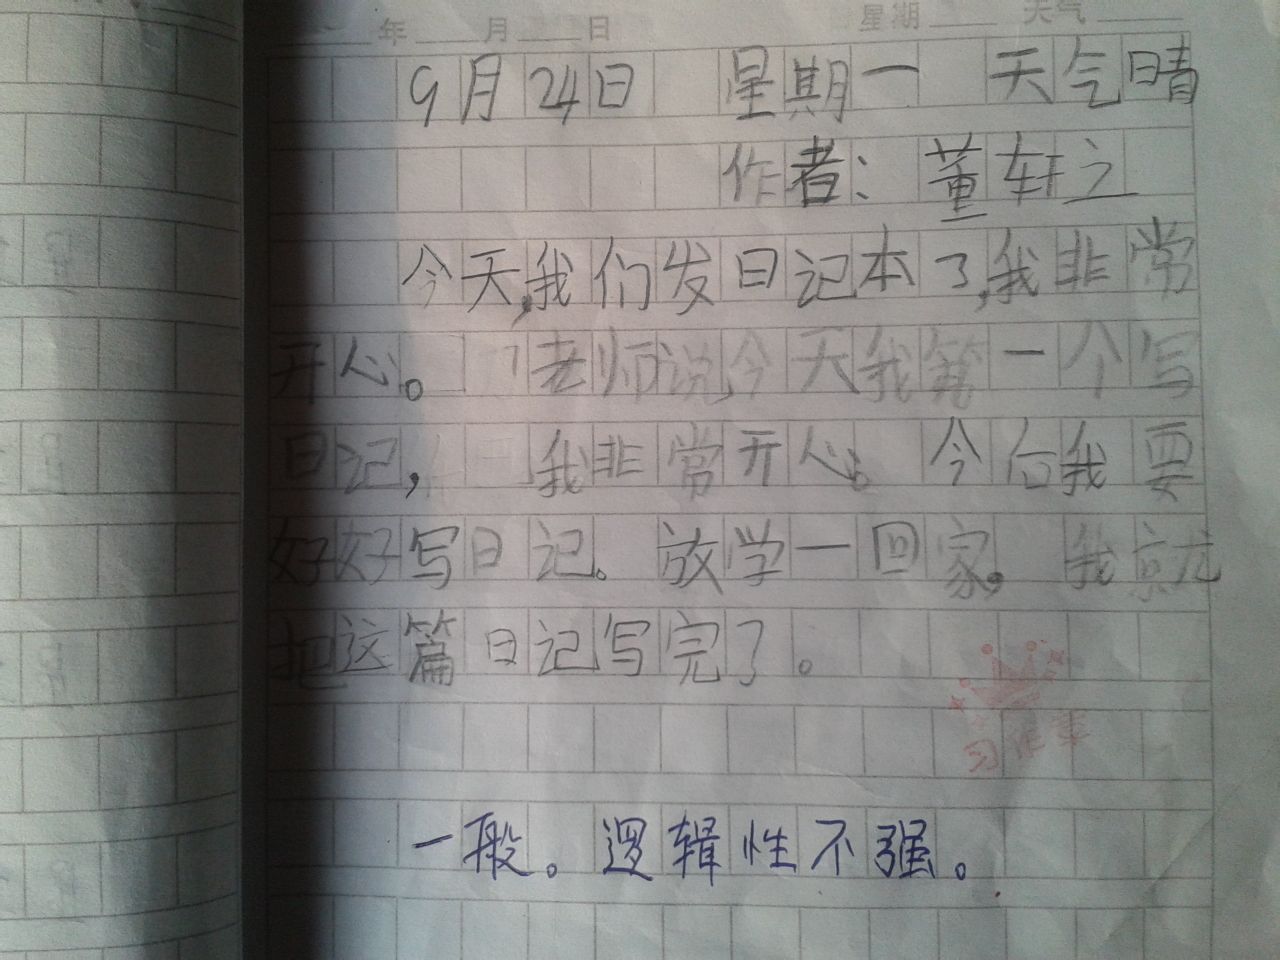 年 月 日 星期 天气
9月24日 星期一 天气晴
作者：董轩之
今天,我们发日记本了,我非常
开心。老师说今天我第一个写
日记,我非常开心。今后我要
好好写日记。放学一回家,我就
把这篇日记写完了。
一般。逻辑性不强。